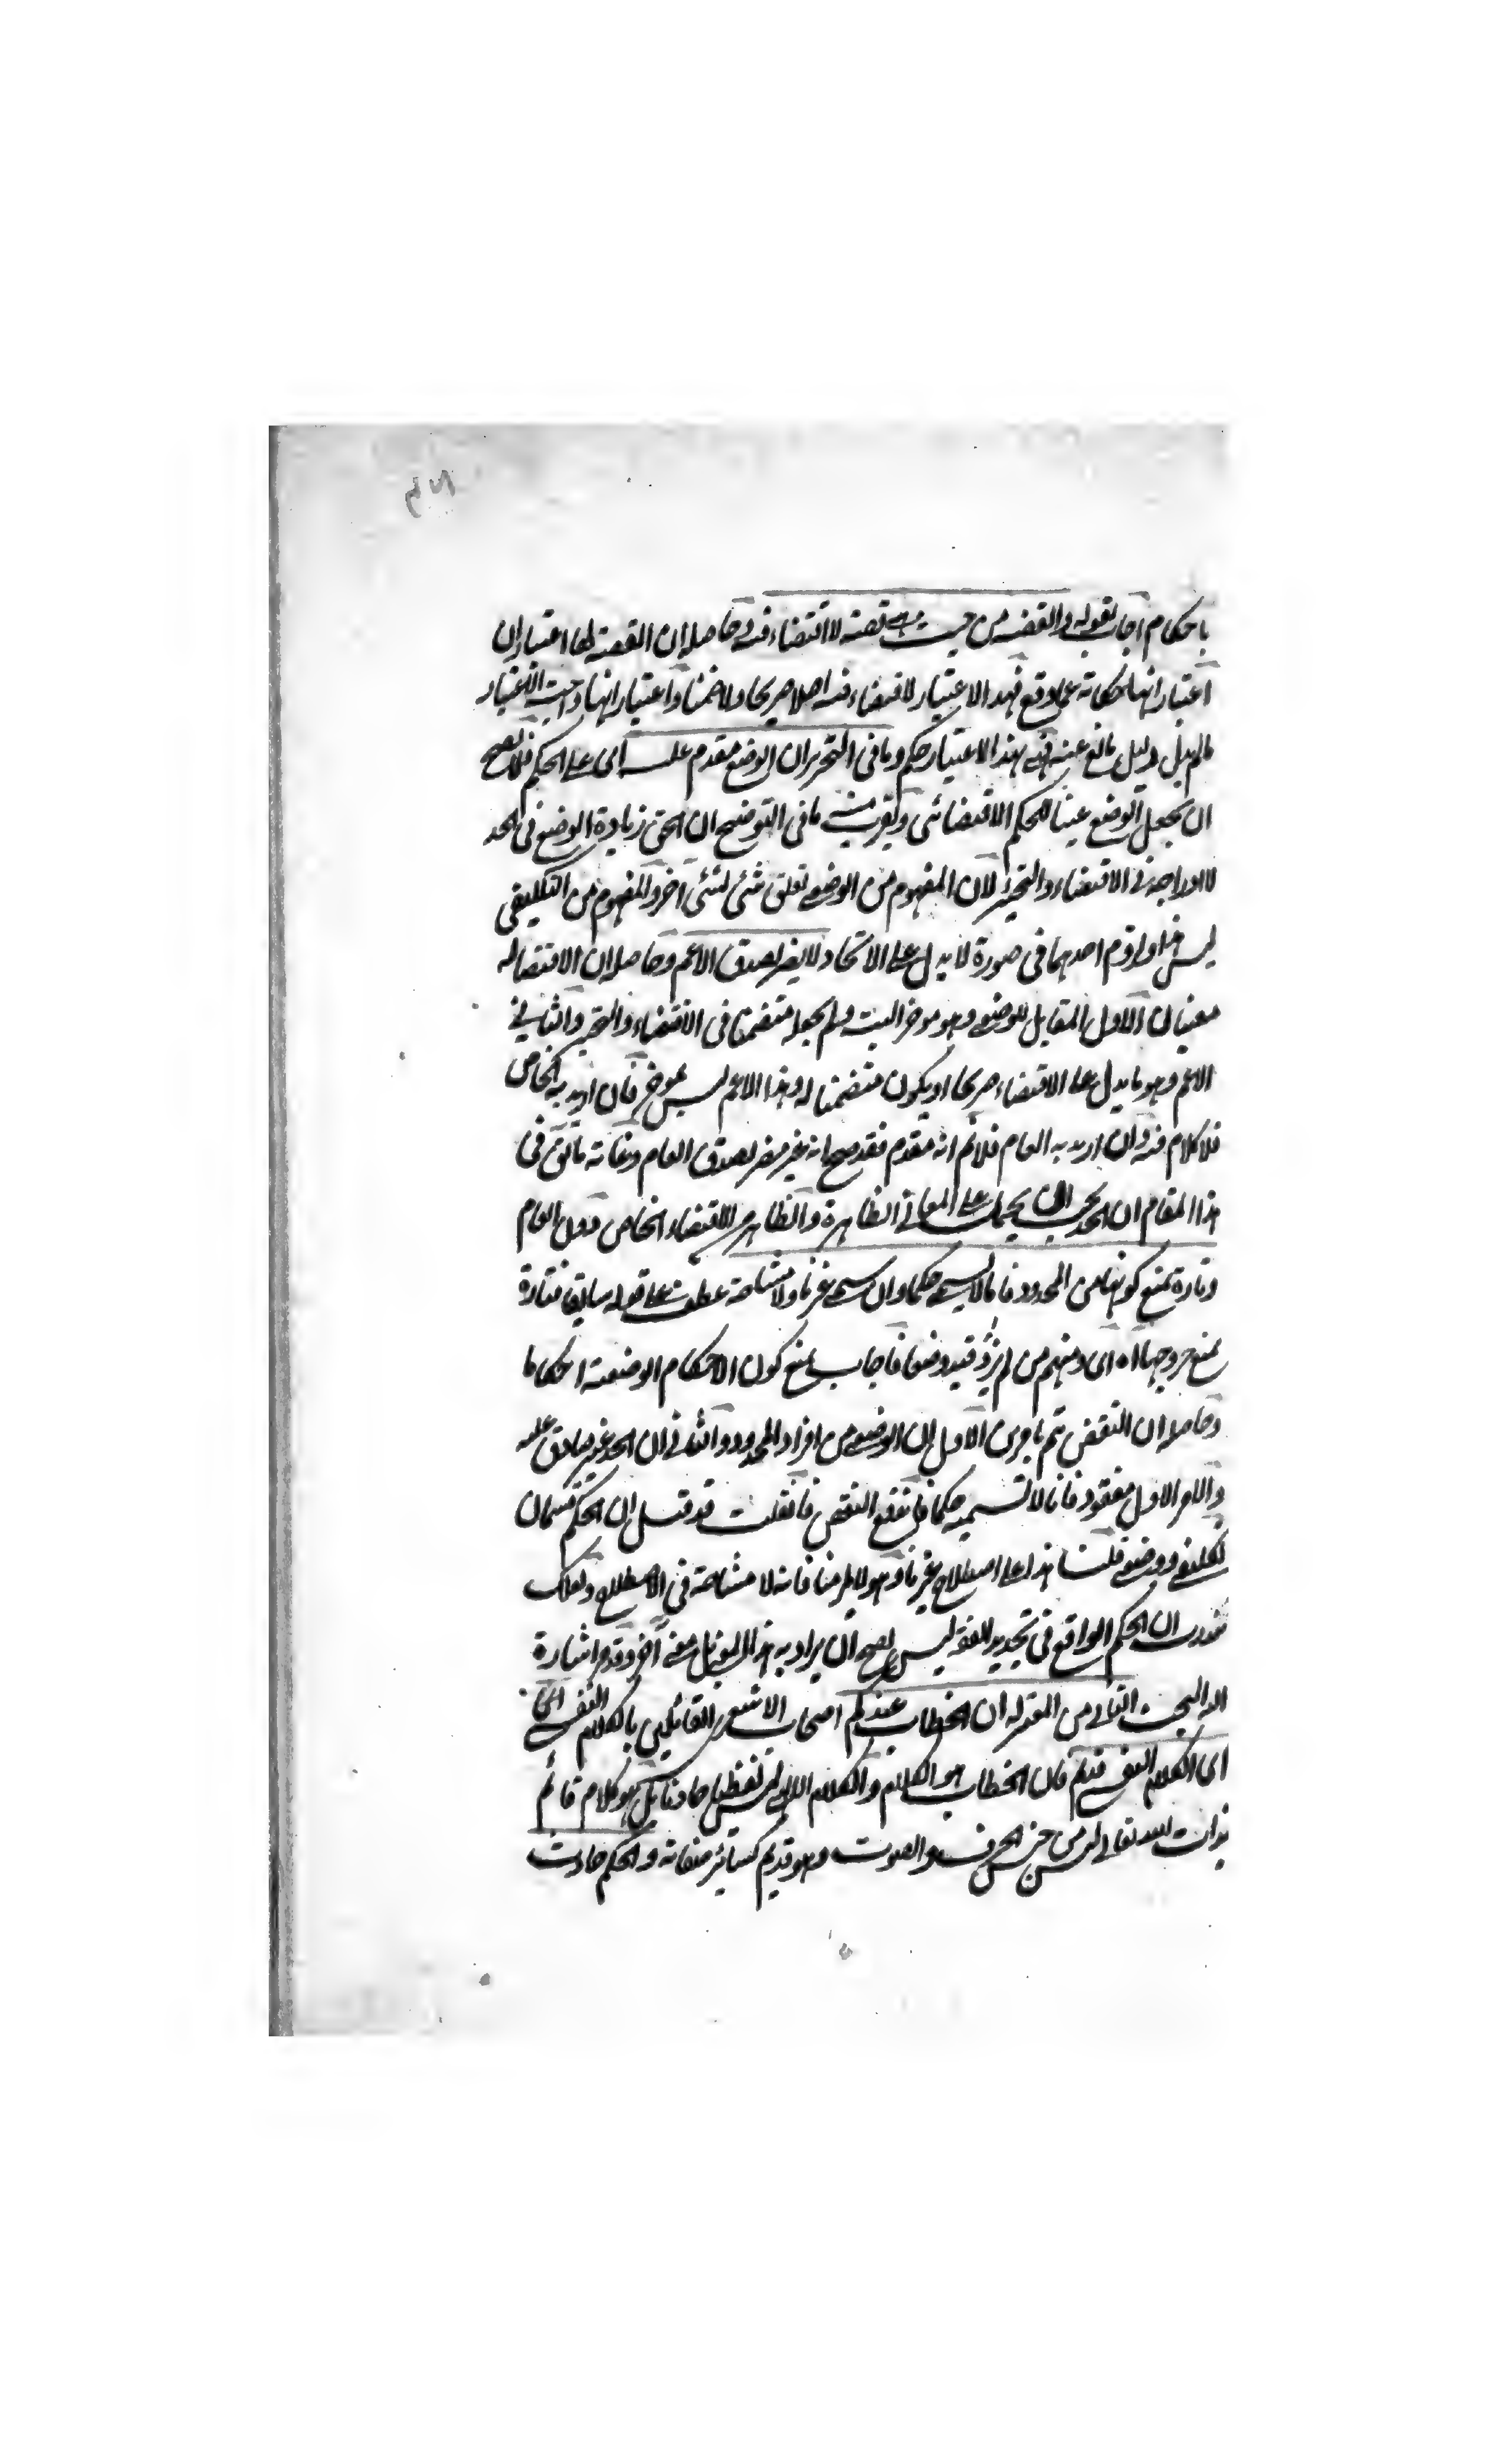 باحكام اجاب بقوله والقصة من حيث هى قصة لا اقتضاء فيه وحاصله ان القصة لها اعتباران
اعتبار انها حكاية عما وقع فبهذا الاعتبار لا اقتضاء فيه اصلا صريحا ولا ضمنا واعتبار انها واجبة الاعتبار
مالم يدل دليل مانع عنه فهى بهذا الاعتبار حكم وما فى التحرير ان الوضع مقدم عليه اى على الحكم فلا يصح
ان يجعل الوضع عينا للحكم الاقتضائى ويقرب منه ما فى التوضيح ان الحق زيادة الوضع فى الحد
لا ادراجه فى الاقتضاء والتخيير لان المفهوم من الوضعى تعلق شئ بشئ آخر والمفهوم من التكليفى
ليس هذا ولزوم احدهما فى صورة لا يدل على الاتحاد لا يضر لصدق الاعم وحاصله ان الاقتضاء له
معنيان الاول المقابل للوضعى وهو موخر البتة ولم يجعله متضمنا فى الاقتضاء والتخيير والثانى
الاعم وهو ما يدل على الاقتضاء صريحا او يكون متضمنا له وهذا الاعم ليس بموخر فان اريد به الخاص
فلا كلام فيه وان اريد به العام فلا نم انه مقدم فقد صح انه غير مضر لصدق العام وغاية ما يق فى
هذا المقام ان الحد يجب ان يحمل على المعانى الظاهرة والظاهر للاقتضاء الخاص دون العام
وتارة بمنع كونها من المحدود فانا لا نسمى حكما وان سمى غيرنا ولا مشاحة عطف على قوله سابقا فتارة
بمنع خروجها اه اى ومنهم من لم يزد قيد وضعا فاجاب بمنع كون الاحكام الوضعية احكاما
وحاصله ان النقض يتم بامرين الاول ان الوضعى من افراد المحدود والثانى ان الحد غير صادق عليه
والامر الاول مفقود فانا لا نسميه حكما فاندفع النقض فان قلت قد قيل ان الحكم قسمان
تكليفى ووضعى قلنا هذا على اصطلاح غيرنا وهو لا يلزمنا فانه لا مشاحة فى الاصطلاح ولعلك
ان الحكم الواقع فى تحديد الفقه ليس يصح ان يراد به هذا المعنى بل معنى آخر وقد مر اشارة
اليه البحث الثانى من المعتزلة ان الخطاب عندكم اصحاب الاشعرى القائلين بالكلام النفسى
اى الكلام النفسى قديم فان الخطاب هو الكلام والكلام اللہ ليس لفظيا حادثا بل هو كلام قائم
بذات اللہ تعالى ليس من جنس الحرف والصوت وهو قديم كسائر صفاته والحكم حادث